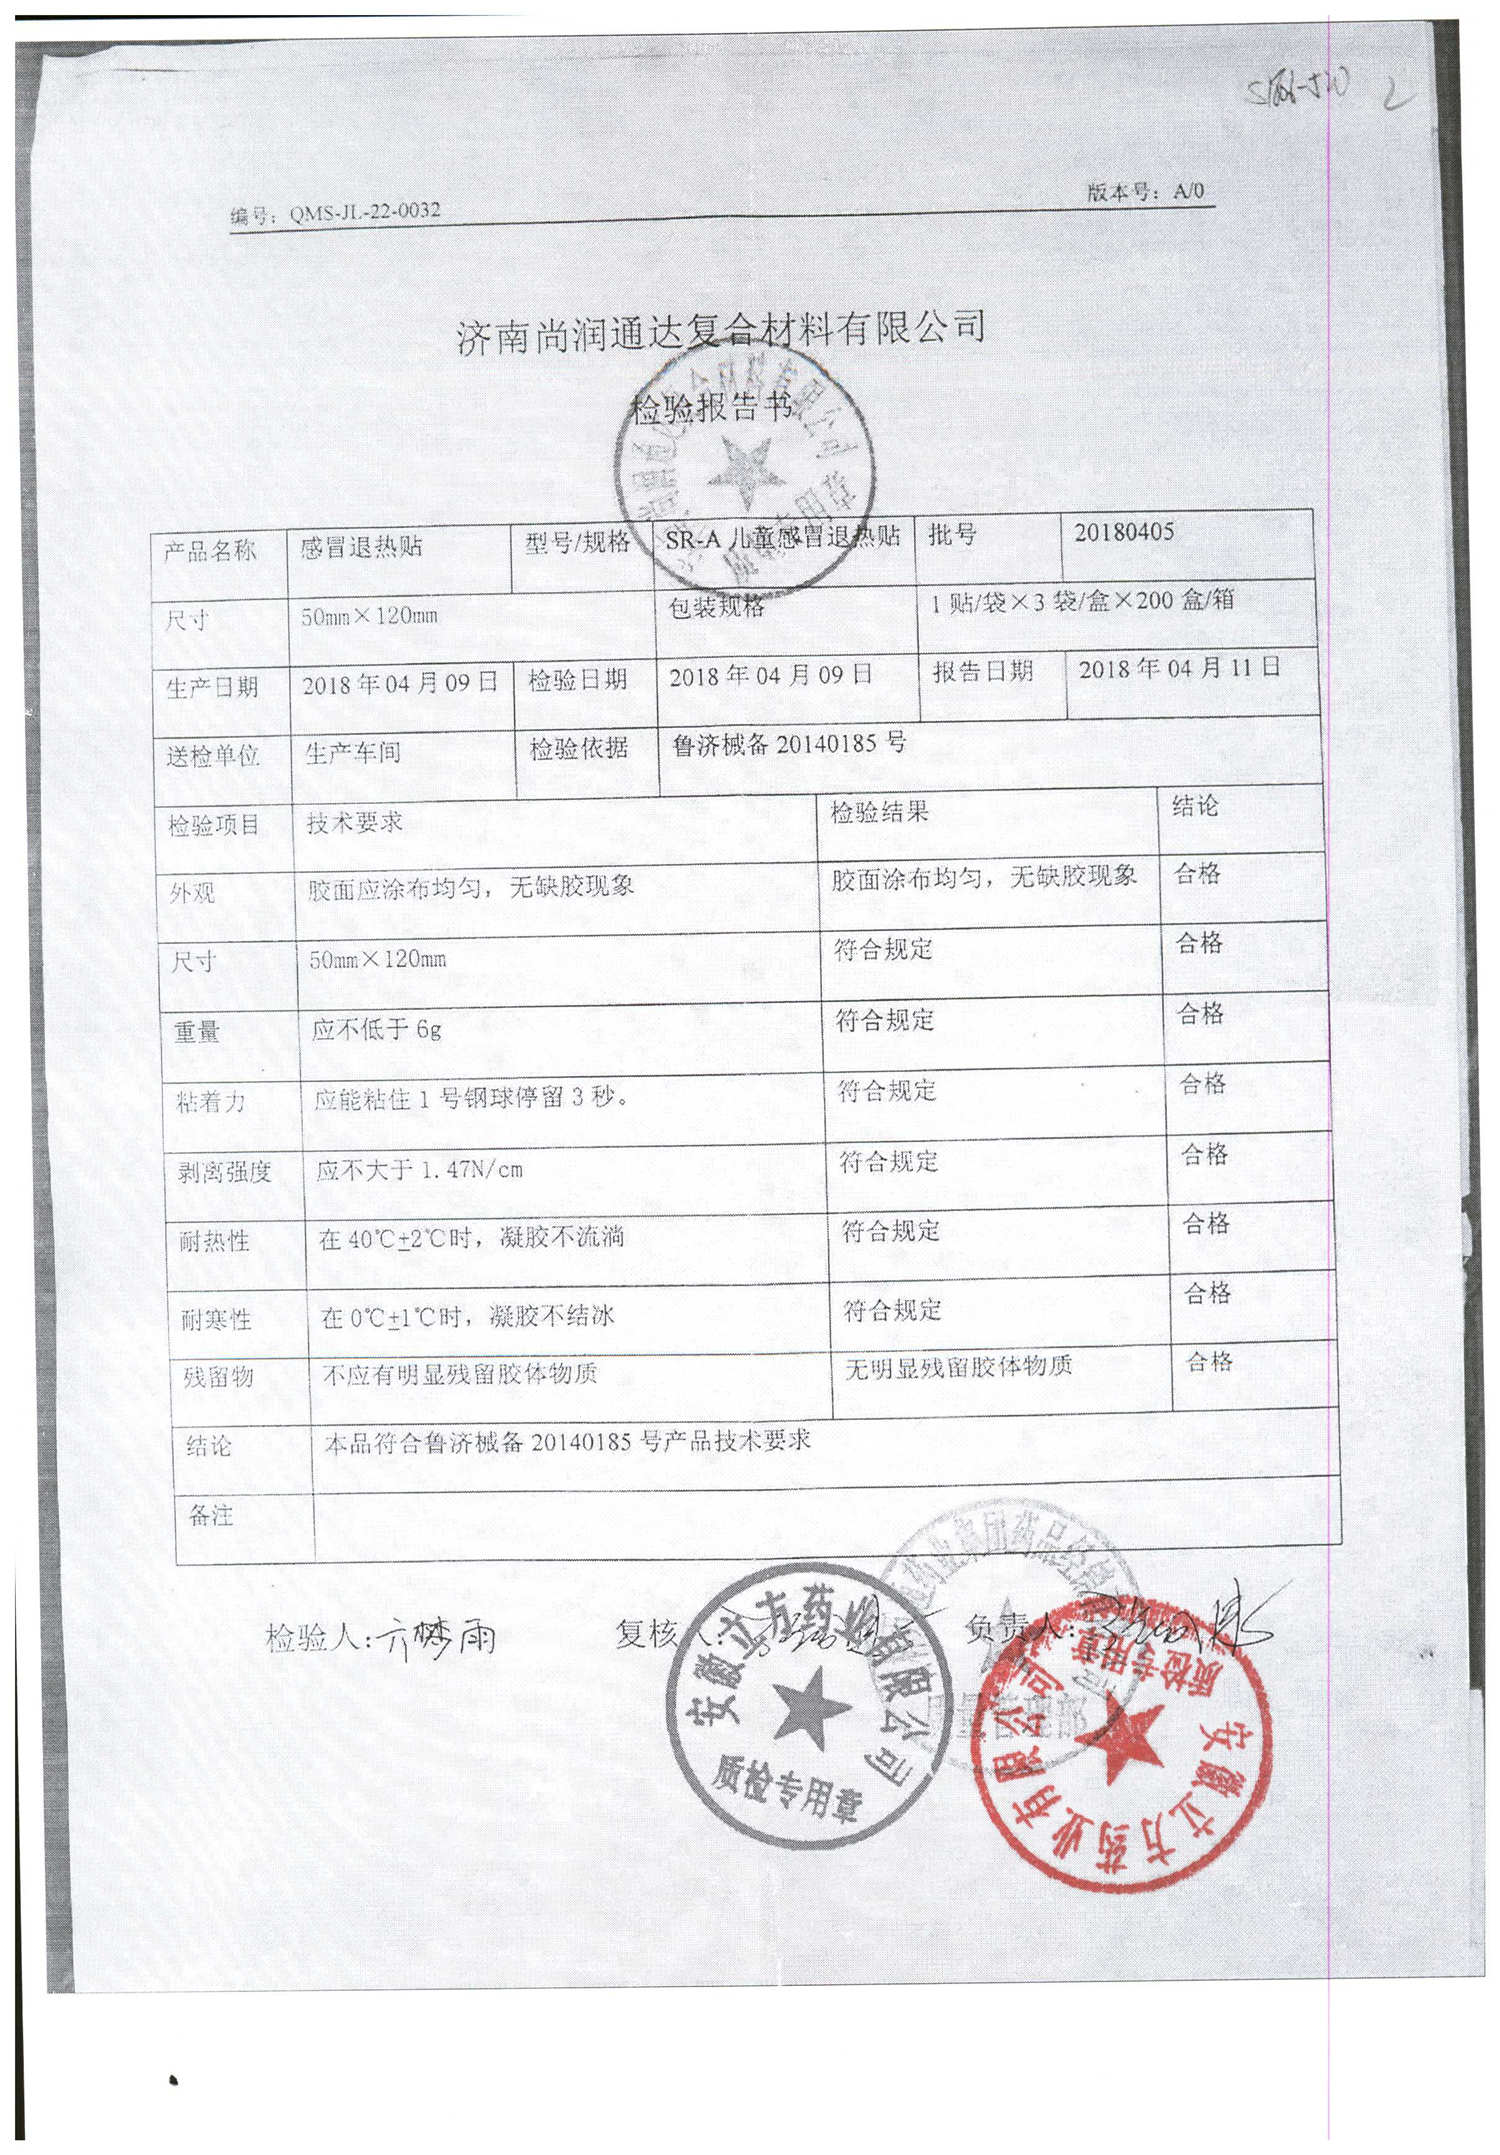 编号：QMS-JL-22-0032 版本号：A/0
济南尚润通达复合材料有限公司
检验报告书
产品名称 感冒退热贴 型号/规格 SR-A 儿童感冒退热贴 批号 20180405
尺寸 50mm×120mm 包装规格 1 贴/袋×3 袋/盒×200 盒/箱
生产日期 2018 年 04 月 09 日 检验日期 2018 年 04 月 09 日 报告日期 2018 年 04 月 11 日
送检单位 生产车间 检验依据 鲁济械备 20140185 号
检验项目 技术要求 检验结果 结论
外观 胶面应涂布均匀，无缺胶现象 胶面涂布均匀，无缺胶现象 合格
尺寸 50mm×120mm 符合规定 合格
重量 应不低于 6g 符合规定 合格
粘着力 应能粘住 1 号钢球停留 3 秒。 符合规定 合格
剥离强度 应不大于 1.47N/cm 符合规定 合格
耐热性 在 40℃±2℃时，凝胶不流淌 符合规定 合格
耐寒性 在 0℃±1℃时，凝胶不结冰 符合规定 合格
残留物 不应有明显残留胶体物质 无明显残留胶体物质 合格
结论 本品符合鲁济械备 20140185 号产品技术要求
备注
检验人： 复核人： 负责人：
安徽立方药业有限公司
质检专用章
安徽立方药业有限公司
质检专用章